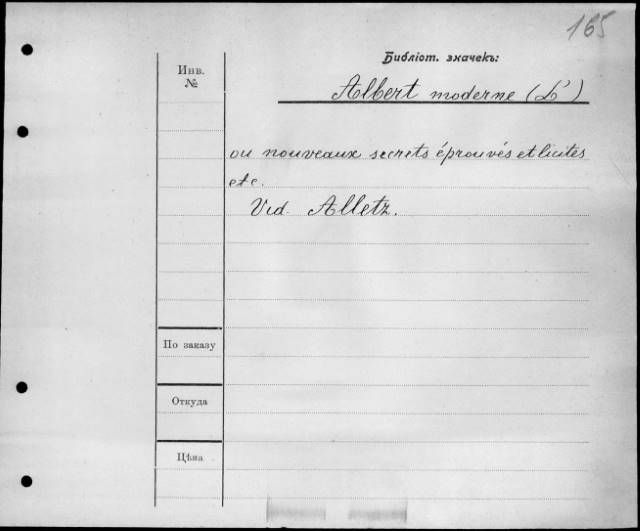 165
Библіот. значекъ:
Инв.
№
Albert moderne (L')
ou nouveaux secrets éprouvés et licites
etc.
Vid. Alletz.
По заказу
Откуда
Цѣна